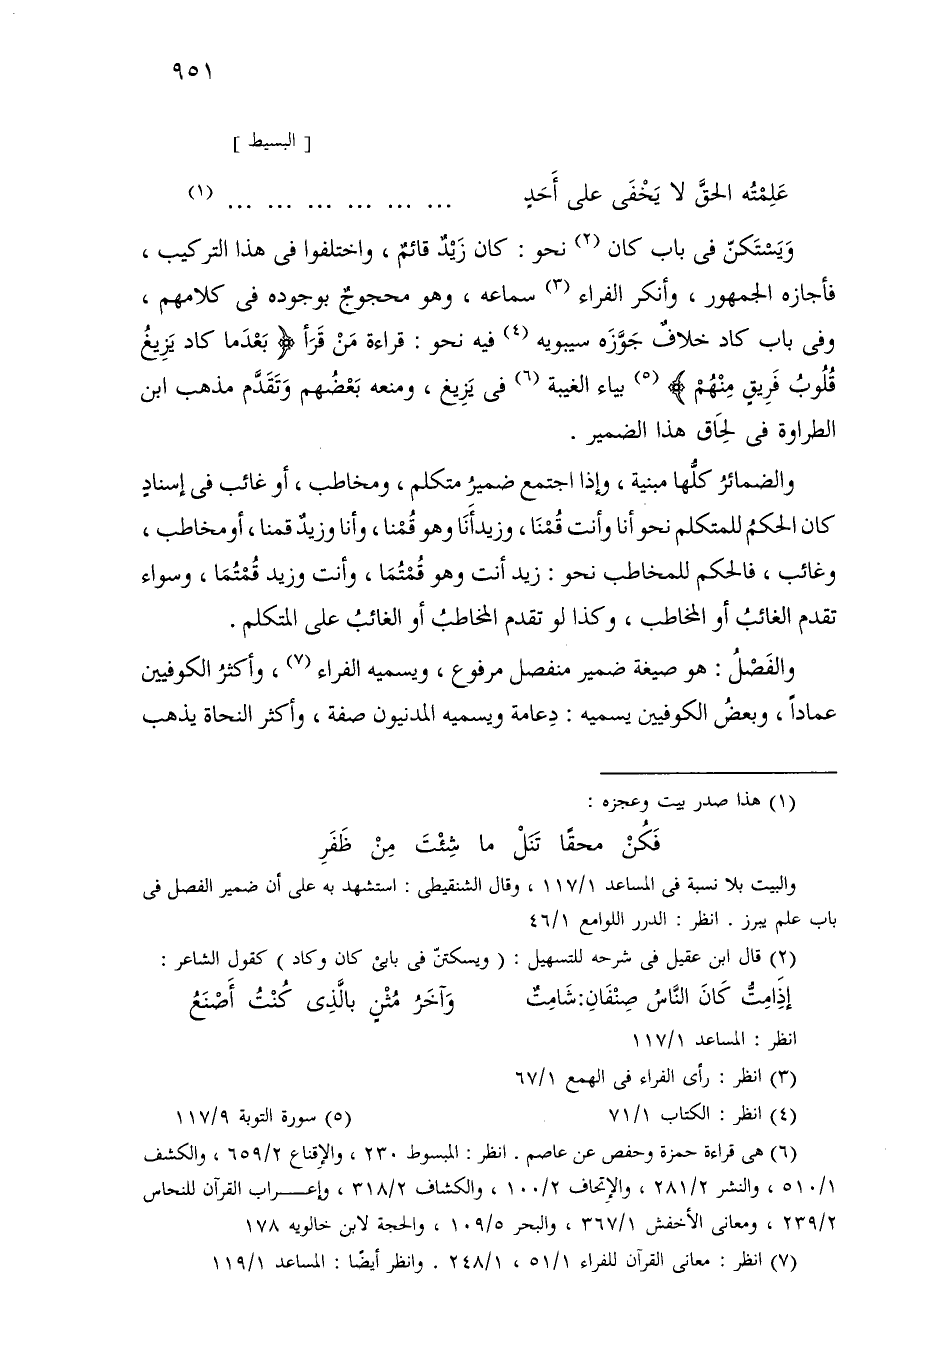 ٩٥١
[ البسيط ]
عَلِمْتُه الحقَّ لا يَخْفَى على أَحَدٍ ... ... ... ... ... ... (١)
وَيَسْتَكنّ فى باب كان (٢) نحو : كان زَيْدٌ قائمٌ ، واختلفوا فى هذا التركيب ،
فأجازه الجمهور ، وأنكر الفراء (٣) سماعه ، وهو محجوجٌ بوجوده فى كلامهم ،
وفى باب كاد خلافٌ جَوَّزَه سيبويه (٤) فيه نحو : قراءة مَنْ قَرَأ ﴿ بَعْدَما كاد يَزِيغُ
قُلُوبُ فَرِيقٍ مِنْهُمْ ﴾ (٥) بياء الغيبة (٦) فى يَزِيغ ، ومنعه بَعْضُهم وَتَقَدَّم مذهب ابن
الطراوة فى لِحَاق هذا الضمير .
والضمائرُ كلُّها مبنية ، وإذا اجتمع ضميرُ متكلم ، ومخاطب ، أو غائب فى إسنادٍ
كان الحكمُ للمتكلم نحو أنا وأنت قُمْنَا ، وزيدأَنَا وهو قُمْنا ، وأنا وزيدٌ قمنا ، أو مخاطب ،
وغائب ، فالحكم للمخاطب نحو : زيد أنت وهو قُمْتُمَا ، وأنت وزيد قُمْتُمَا ، وسواء
تقدم الغائبُ أو المخاطب ، وكذا لو تقدم المخاطبُ أو الغائبُ على المتكلم .
والفَصْلُ : هو صيغة ضمير منفصل مرفوع ، ويسميه الفراء (٧) ، وأكثرُ الكوفيين
عماداً ، وبعضُ الكوفيين يسميه : دِعامة ويسميه المدنيون صفة ، وأكثر النحاة يذهب
(١) هذا صدر بيت وعجزه :
فَكُنْ محقًا تَنَلْ ما شِئْتَ مِنْ ظَفَرِ
والبيت بلا نسبة فى المساعد ١١٧/١ ، وقال الشنقيطى : استشهد به على أن ضمير الفصل فى
باب علم يبرز . انظر : الدرر اللوامع ٤٦/١
(٢) قال ابن عقيل فى شرحه للتسهيل : ( ويسكتنّ فى بابىْ كان وكاد ) كقول الشاعر :
إذَامِتُّ كَانَ النَّاسُ صِنْفَانِ:شَامِتٌ وَآخَرُ مُثْنٍ بالَّذِى كُنْتُ أَصْنَعُ
انظر : المساعد ١١٧/١
(٣) انظر : رأى الفراء فى الهمع ٦٧/١
(٤) انظر : الكتاب ٧١/١ (٥) سورة التوبة ١١٧/٩
(٦) هى قراءة حمزة وحفص عن عاصم . انظر : المبسوط ٢٣٠ ، والإقناع ٦٥٩/٢ ، والكشف
٥١٠/١ ، والنشر ٢٨١/٢ ، والإتحاف ١٠٠/٢ ، والكشاف ٣١٨/٢ ، وإعـــراب القرآن للنحاس
٢٣٩/٢ ، ومعانى الأخفش ٣٦٧/١ ، والبحر ١٠٩/٥ ، والحجة لابن خالويه ١٧٨
(٧) انظر : معانى القرآن للفراء ٥١/١ ، ٢٤٨/١ . وانظر أيضًا : المساعد ١١٩/١